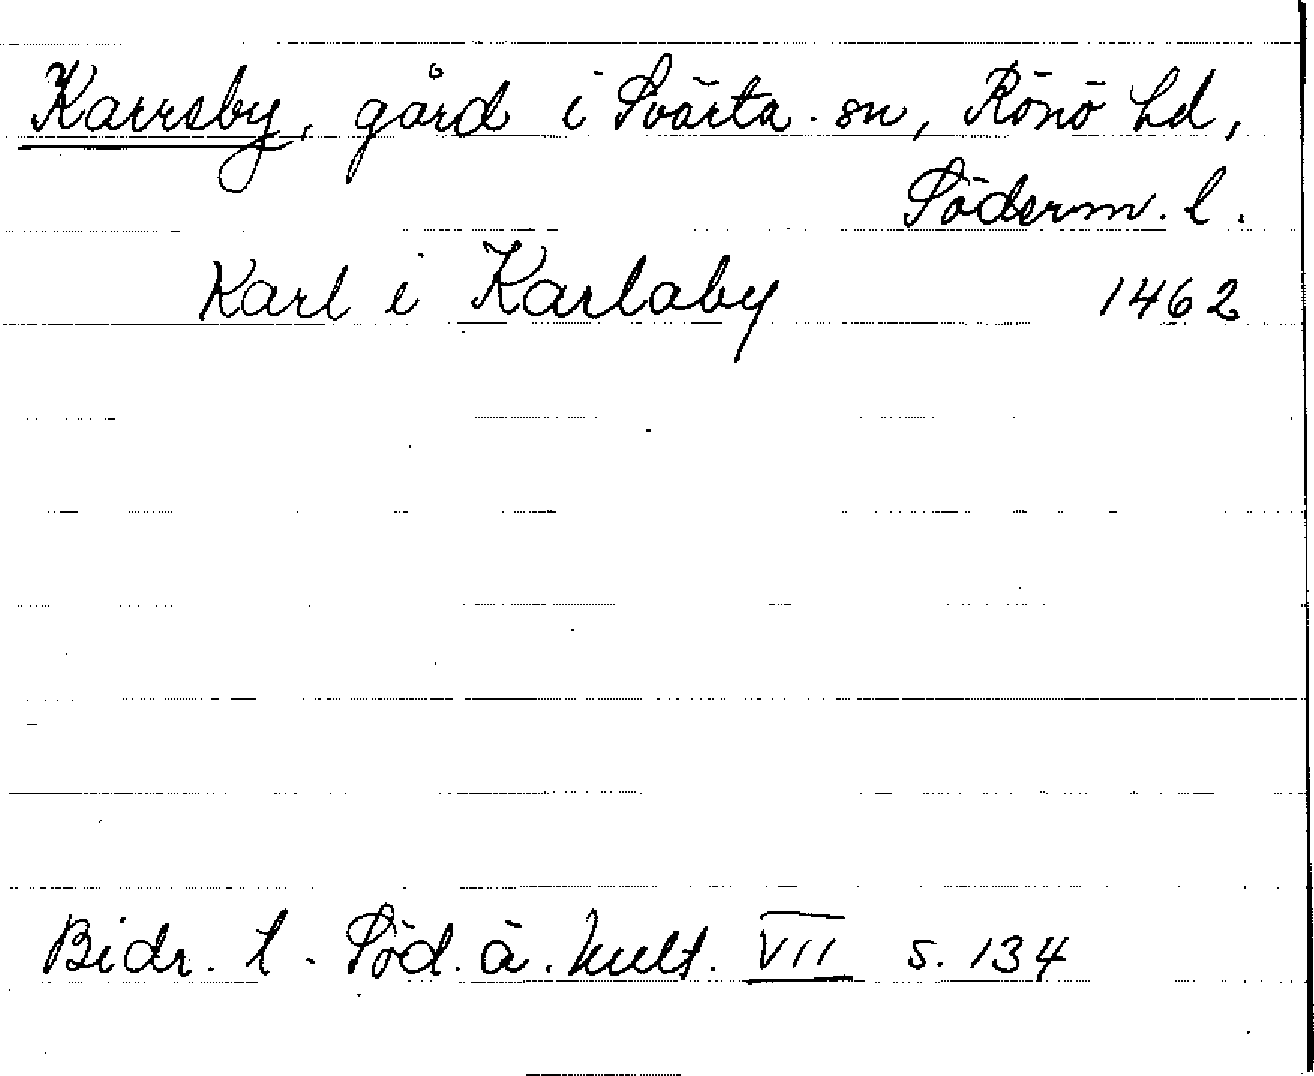 Karrsby, gård i Svärta sn, Rönö hd,
Söderm. l.
Karl i Karlaby 1462
Bidr. t. Söd. ä. kult. VII s. 134